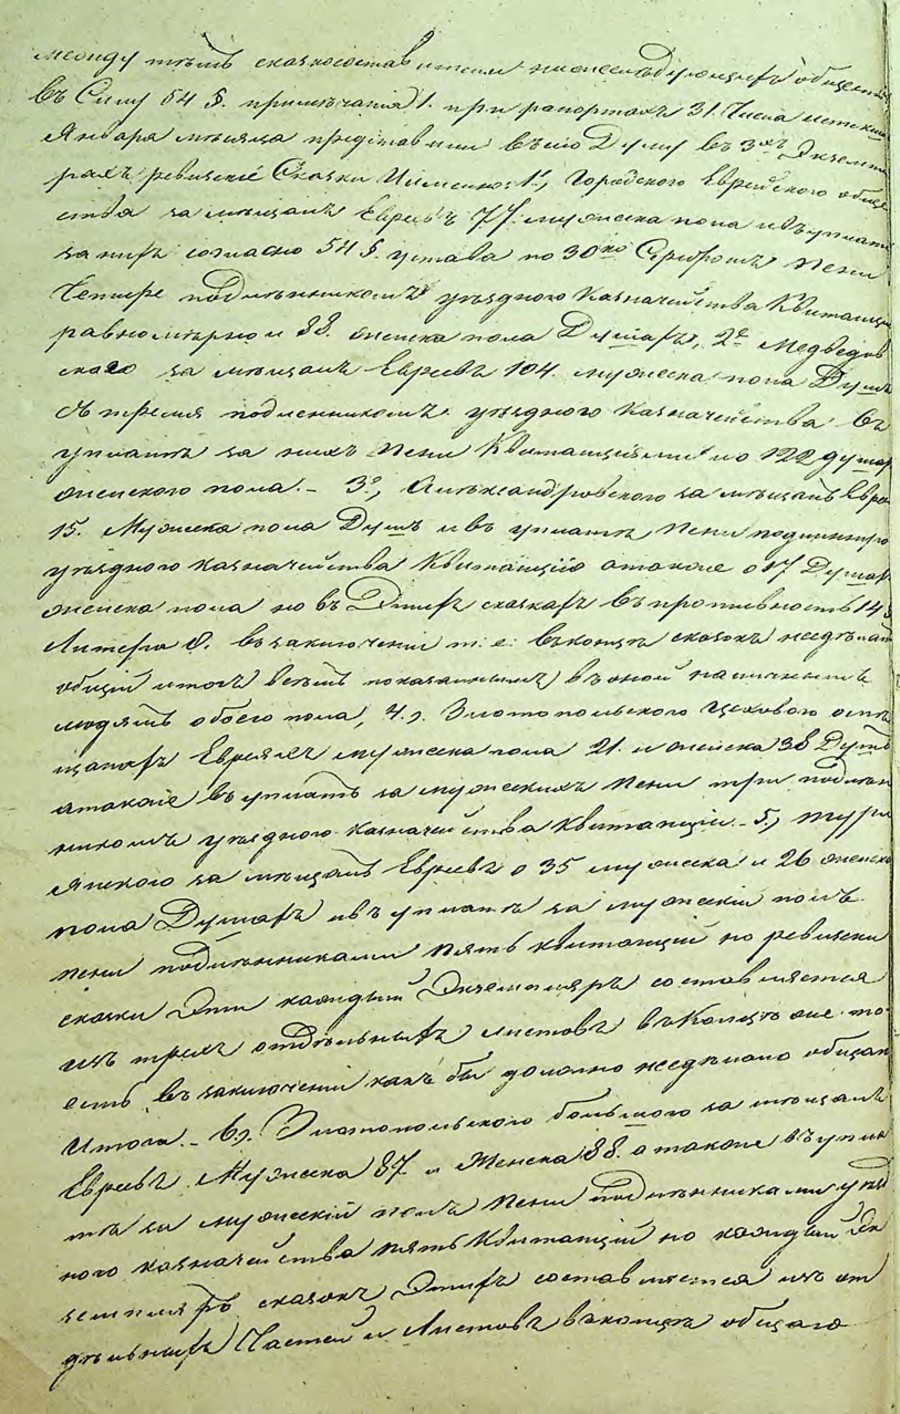 между тѣмъ сказкосоставители нижеслѣдующихъ обществъ
въ Силу 54 §. примѣчанія 1. при рапортахъ 31. Числа истекш
Января мѣсяца представили въ сію Думу въ 3хъ Экземпля
рахъ ревизскіе Сказки Именно: 1е, Городского Еврейского обще
ства за мѣщанъ Евреевъ 77. мужеска пола и въ уплатѣ
за нихъ согласно 54 §. устава по 30 ко Серебромъ пени
Четыре подлѣнникомъ уѣздного Казначейства Квитанціи
равномѣрно и 88. женска пола Душахъ, 2е Медведов
ского за мѣщанъ Евреевъ 104. мужеска пола Душъ
съ тремя подленникомъ уѣздного Казначейства въ
уплатѣ за нихъ пени Квитанціями и о 122 душах
женского пола. – 3е, Александровского за мѣщанъ Евре
15. Мужеска пола Душъ и въ уплатѣ пени подлинную
уѣздного казначейства Квитанцію а также о 17 Душах
женска пола но въ Этихъ сказкахъ въ противность 14 §
Литера 8. въ заключеніи т: е: въ концѣ сказокъ несдѣлан
общій итогъ всѣмъ показаннымъ въ оной наличнымъ
людямъ обоего пола, 4.) Златопольского Цехового о мѣ
щанахъ Евреяхъ мужеска пола 21. и женска 38 Душъ
а также въ уплатѣ за мужескихъ пени три подлѣн
никомъ уѣздного Казначейства Квитанціи. – 5.) Тури
янского за мѣщанъ Евреевъ о 35 мужеска и 26 женска
пола Душахъ и въ уплатѣ за мужескій полъ
пени подлѣнниками пять квитанцій но ревизски
сказки Эти каждый Экземпляръ составляется
изъ трехъ отдѣльныхъ листовъ въ Концѣ же то
есть въ заключеніи какъ бы должно несдѣлано общаго
Итога. – 6.) Златопольского большого за мѣщанъ
Евреевъ Мужеска 87 и Женска 88. а также въ упла
тѣ за мужескій полъ пени подлѣнниками уѣзд
ного казначейства пять Квитанцій но каждый Эк
земпляръ сказокъ Этихъ составляется изъ от
дѣльныхъ Частей и Листовъ въ концѣ общаго